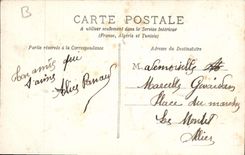 B
CARTE POSTALE
A utiliser seulement dans le Service Intérieur
(France, Algérie et Tunisie)
Partie réservée à la Correspondance
Adresse du Destinataire
Ton amie que
t'aime
Alice
Mademoiselle
Marcelle
Place du marché
Les
Allier